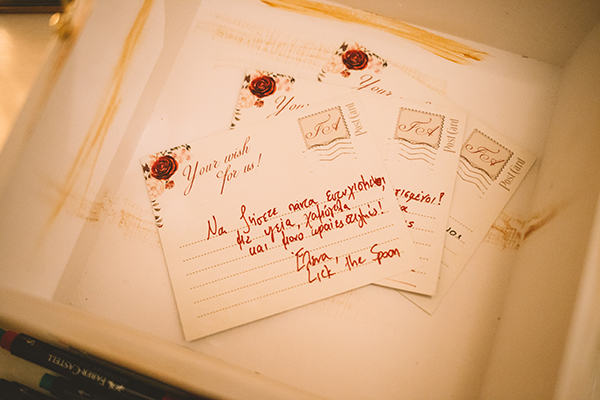 Your
Your
TA
TA
TA
Post Card
Post Card
Post Card
Your wish
for us!
Να ζήσετε πάντα ευτυχισμένοι,
με υγεία, χαμόγελα
και μόνο ωραίες στιγμές!
Έλενα
Lick the Spoon
FABER-CASTELL